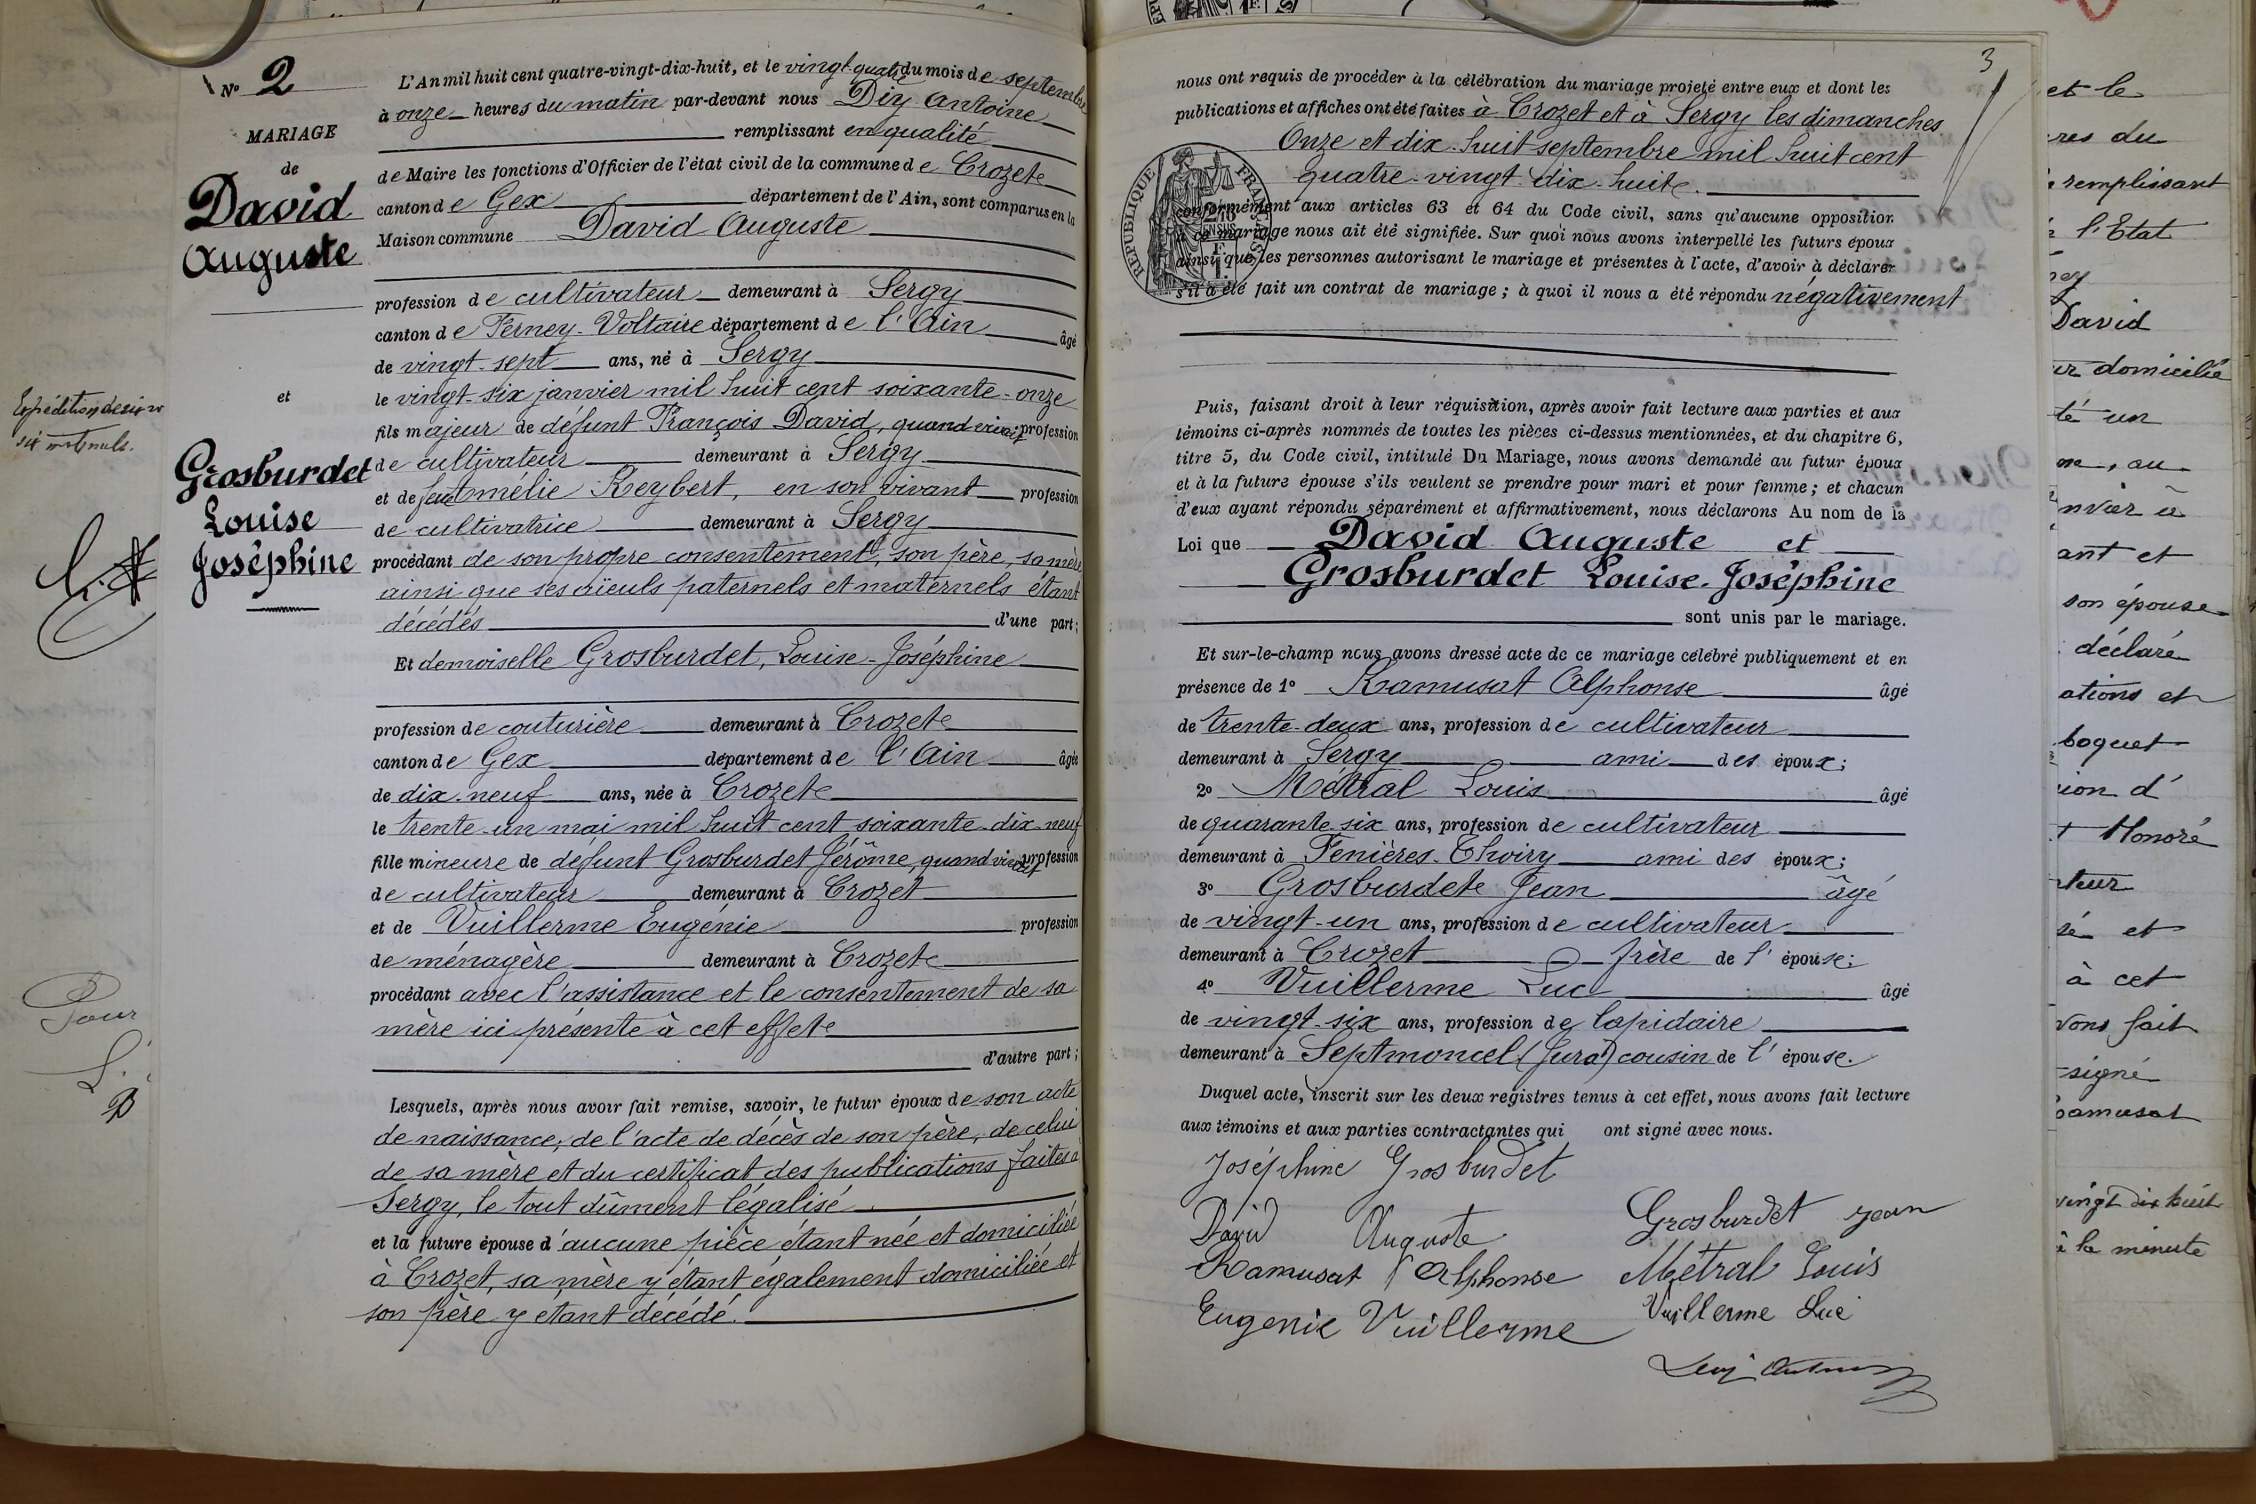 N° 2
MARIAGE
de
David
Auguste
et
Grosburdet
Louise
Joséphine
L'An mil huit cent quatre-vingt-dix-huit, et le vingt-quatre du mois de septembre
à onze heures du matin par-devant nous Diy Antoine
remplissant en qualité
de Maire les fonctions d'Officier de l'état civil de la commune de Crozete
canton de Gex département de l'Ain, sont comparus en la
Maison commune David Auguste
profession de cultivateur demeurant à Sergy
canton de Ferney-Voltaire département de l'Ain âgé
de vingt-sept ans, né à Sergy
le vingt-six janvier mil huit cent soixante-onze
fils majeur de défunt François David, quand vivait profession
de cultivateur demeurant à Sergy
et de feue Amélie Reybert, en son vivant profession
de cultivatrice demeurant à Sergy
procédant de son propre consentement, son père, sa mère
ainsi que ses aïeuls paternels et maternels étant
décédés d'une part;
Et demoiselle Grosburdet, Louise-Joséphine
profession de couturière demeurant à Crozete
canton de Gex département de l'Ain âgée
de dix-neuf ans, née à Crozete
le trente-un mai mil huit cent soixante-dix-neuf
fille mineure de défunt Grosburdet Jérôme, quand vivait profession
de cultivateur demeurant à Crozet
et de Vuillerme Eugénie profession
de ménagère demeurant à Crozete
procédant avec l'assistance et le consentement de sa
mère ici présente à cet effete
d'autre part;
Lesquels, après nous avoir fait remise, savoir, le futur époux de son acte
de naissance, de l'acte de décès de son père, de celui
de sa mère et du certificat des publications faites à
Sergy, le tout dûment légalisé
et la future épouse d'aucune pièce étant née et domiciliée
à Crozet, sa mère y étant également domiciliée et
son père y étant décédé.
Pour
3
nous ont requis de procéder à la célébration du mariage projeté entre eux et dont les
publications et affiches ont été faites à Crozet et à Sergy les dimanches
Onze et dix-huit septembre mil huit cent
quatre-vingt-dix-huite.
conformément aux articles 63 et 64 du Code civil, sans qu'aucune opposition
à ce mariage nous ait été signifiée. Sur quoi nous avons interpellé les futurs époux
ainsi que les personnes autorisant le mariage et présentes à l'acte, d'avoir à déclarer
s'il a été fait un contrat de mariage; à quoi il nous a été répondu négativement
RÉPUBLIQUE FRANÇAISE
Puis, faisant droit à leur réquisition, après avoir fait lecture aux parties et aux
témoins ci-après nommés de toutes les pièces ci-dessus mentionnées, et du chapitre 6,
titre 5, du Code civil, intitulé Du Mariage, nous avons demandé au futur époux
et à la future épouse s'ils veulent se prendre pour mari et pour femme; et chacun
d'eux ayant répondu séparément et affirmativement, nous déclarons Au nom de la
Loi que David Auguste et
Grosburdet Louise-Joséphine
sont unis par le mariage.
Et sur-le-champ nous avons dressé acte de ce mariage célébré publiquement et en
présence de 1° Ramusat Alphonse âgé
de trente-deux ans, profession de cultivateur
demeurant à Sergy ami des époux;
2° Métral Louis âgé
de quarante-six ans, profession de cultivateur
demeurant à Fenières-Thoiry ami des époux;
3° Grosburdete Jean âgé
de vingt-un ans, profession de cultivateur
demeurant à Crozet frère de l'épouse;
4° Vuillerme Luc âgé
de vingt-six ans, profession de lapidaire
demeurant à Septmoncel (Jura) cousin de l'épouse.
Duquel acte, inscrit sur les deux registres tenus à cet effet, nous avons fait lecture
aux témoins et aux parties contractantes qui ont signé avec nous.
Joséphine Grosburdet
David Auguste Grosburdet Jean
Ramusat Alphonse Métral Louis
Eugenie Vuillerme Vuillerme Luc
et le
remplissant
l'Etat
David
domicilié
té un
ant et
son épouse
déclaré
ations et
Honoré
sé et
à cet
vons fait
signé
vingt dix huit
à la minute